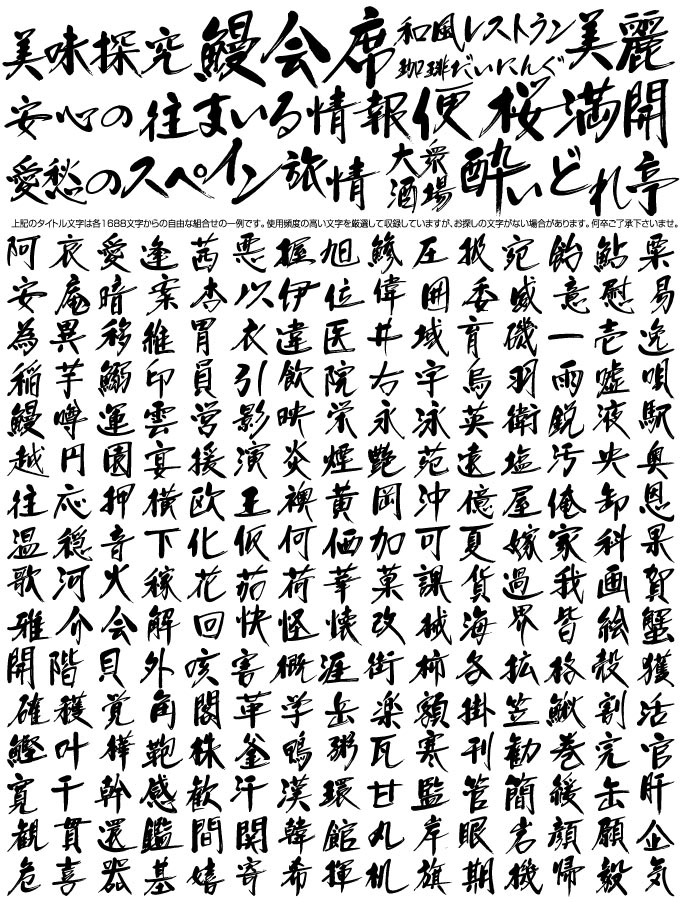 美味探究鰻会席和風レストラン美麗
珈琲だいにんぐ
安心の住まいる情報便桜満開
愛愁のスペイン旅情大衆酒場酔いどれ亭
上記のタイトル文字は各1688文字からの自由な組合せの一例です。使用頻度の高い文字を厳選して収録していますが、お探しの文字がない場合があります。何卒ご了承下さいませ。
阿哀愛逢茜悪握旭鯵圧扱宛飴鮎粟
安庵暗案杏以伊位偉囲委威意慰易
為異移維胃衣違医井域育磯一壱逸
稲芋鰯印員引飲院右宇烏羽雨嘘唄
鰻噂運雲営影映栄永泳英衛鋭液駅
越円園宴援演炎煙艶苑遠塩汚央奥
往応押横欧王襖黄岡沖億屋俺卸恩
温穏音下化仮何価加可夏嫁家科果
歌河火稼花茄荷華菓課貨過我画賀
雅介会解回快怪懐改械海界皆絵蟹
開階貝外亥害概涯街柿各拡格殻獲
確穫覚角閣革学岳楽額掛笠鰍割活
鰹叶樺鞄株釜鴨粥瓦寒刊勧巻完官
寛干幹感歓汗漢環甘監管簡緩缶肝
観貫還鑑間関韓館丸岸眼岩顔願企
危喜器基嬉寄希揮机旗期機帰毅気